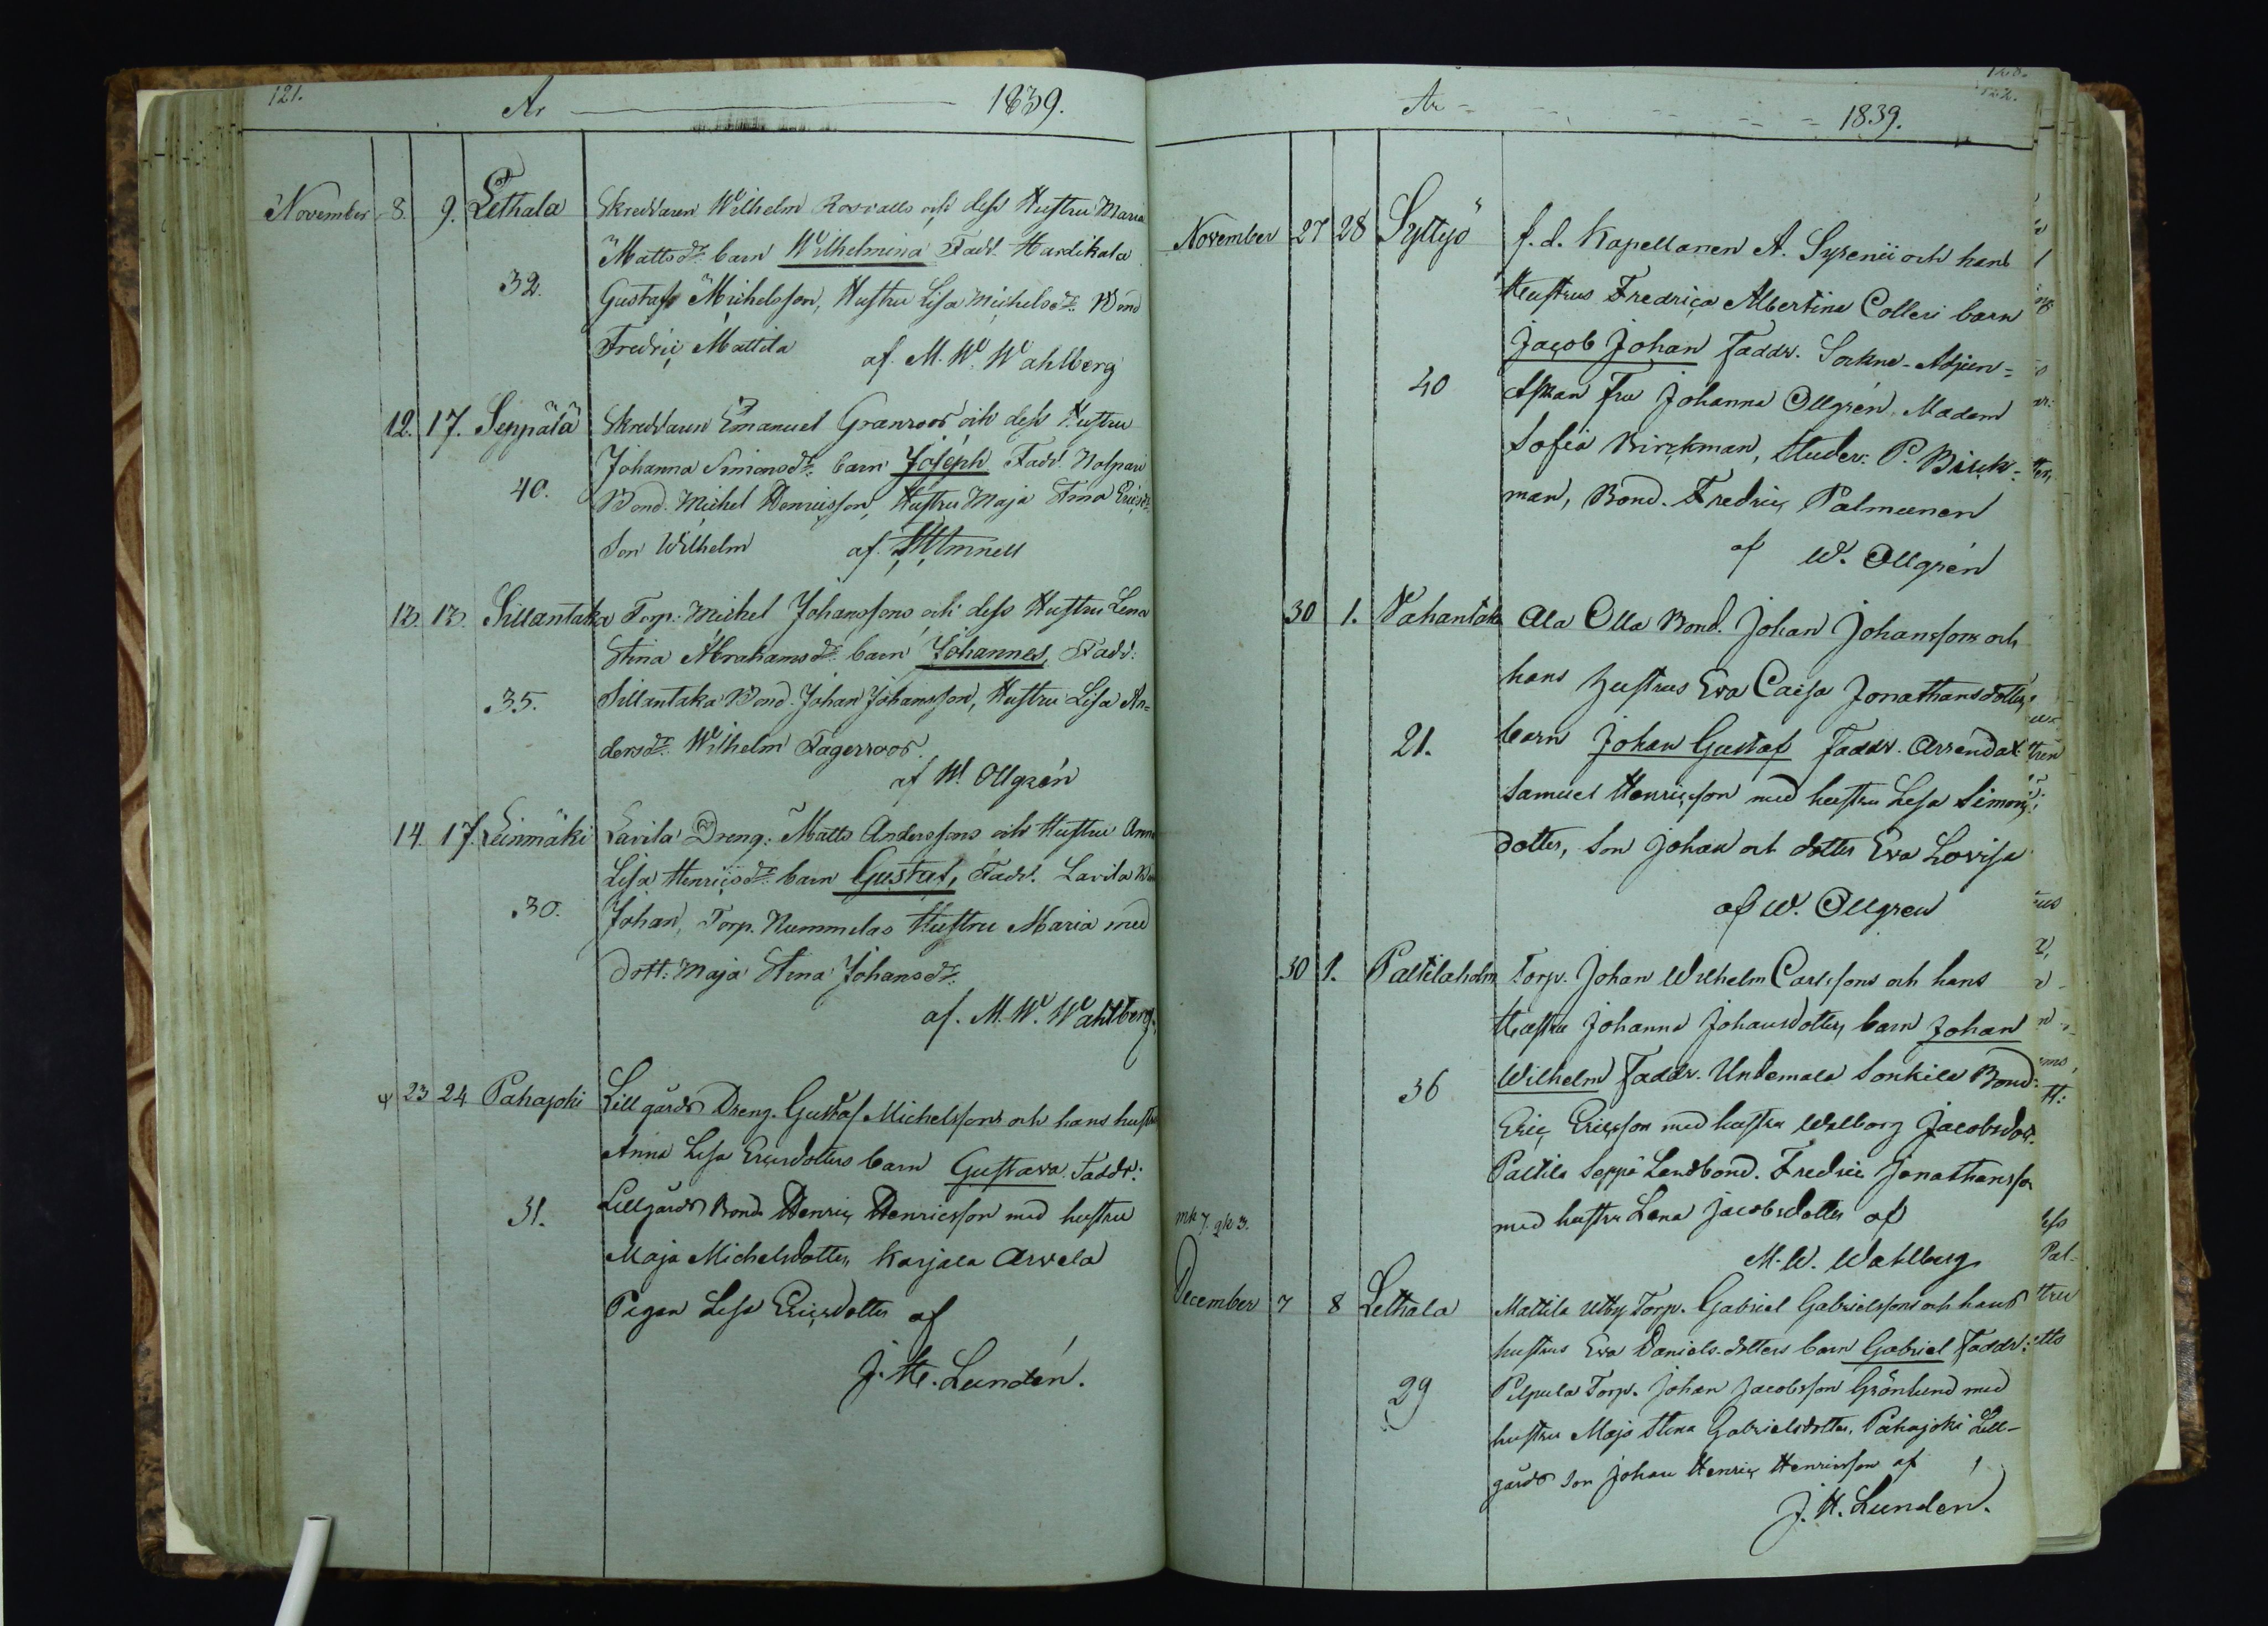 121.
År 1839.
November 8. 9. Lethala Skreddaren Wilhelm Rosvalls och dess Hustru Maria
Mattsdr. barn Wilhelmina Fadd. Hardikala
32. Gustaf Michelsson, Hustru Lisa Michelsdr. Bond
Fredric Mattila
af. M. W. Wahlberg
12. 17. Seppälä Skreddaren Emanuel Granroos och dess Hustru
Johanna Simonsdr. barn Joseph Fadd.
40. Bond. Michel Henricsson, Hustru Maja Stina Ericsdr.
Son Wilhelm af.
13. 13. Sillantaka Torp. Michel Johanssons och dess Hustru Lena
Stina Abrahamsdr. barn Johannes, Fadd:
35. Sillantaka Bond. Johan Johansson, Hustru Lisa An=
dersdr. Wilhelm Fagerroos.
af W. Ollgrén
14. 17. Leinmäki Lavila Dreng: Matts Anderssons och Hustru Anna
Lisa Henricsdr. barn Gustaf, Fadd. Lavila
30. Johan, Torp. Nummelas Hustru Maria med
dott: Maja Stina Johansdr.
af. M. W. Wahlberg.
23 24 Pahajoki Lillgårds Dreng. Gustaf Michelssons och hans hustru
Anna Lisa Ericsdotters barn Gustava Faddr:
31. Lillgårds Bond. Henric Henricsson med hustru
Maja Michelsdotter, Karjala Arvela
Pigan Lisa Ericsdotter af
J. H. Lundén.
År 1839.
November 27 28 Syltyö f. d. Kapellanen A. Syrenii och hans
Hustrus Fredrica Albertina Colleri barn
Jacob Johan Faddr. Sockne-Adjun=
40 Fru Johanna Ollgrén, Madam
Sofia Birckman, Studer. P. Birck=
man, Bond. Fredric Palmunen
af W. Ollgrén
30 1. Vahantaka Ala Olla Bond. Johan Johanssons och
hans hustrus Eva Caisa Jonathansdotters
21. barn Johan Gustaf Faddr. Arrendat.
Samuel Henricsson med hustru Lisa Simons
dotter, Son Johan och dotter Eva Lovisa
af W. Ollgren
30 1. Paltilaholm Torp. Johan Wilhelm Carlssons och hans
Hustru Johanna Johansdotters barn Johan
36 Wilhelm Faddr. Untamala Sonkila Bond:
Eric Ericsson med hustru Walborg Jacobsdott.
Paltila Seppä Landbond. Fredric Jonathansson
med hustru Lena Jacobsdotter af
M. W. Wahlberg
mk 7. qk 3.
December 7 8 Lethala Mattila Utby Torp. Gabriel Gabrielssons och hans
hustrus Eva Daniels-dotters barn Gabriel Faddr:
29 Pilpula Torp. Johan Jacobsson Grönlund med
hustru Maja Stina Gabrielsdotter, Pahajoki Lill-
gårds Son Johan Henric Henricsson af
J. H. Lundén.